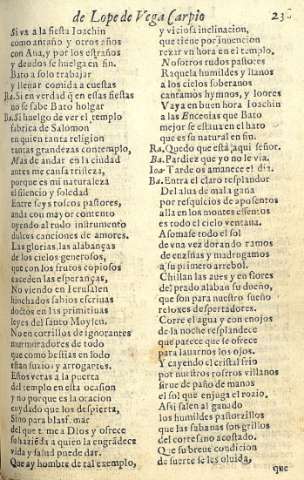 de Lope de Vega Carpio 23
Si va a la fiesta Ioachin
como antaño y otros años
y con Ana, y por los estraños
y deudos se huelga en fin.
Bato a solo trabajar
y llenar comida a cuestas
Ba. Si en verdad q̃ en essas fiestas
no se sabe Bato holgar
Ba. Si huelgo de ver el templo
fabrica de Salomon
en quien tanta religion
tantas grandezas contemplo,
Mas de andar en la ciudad
antes me cansa tristeza,
porque es mi naturaleza
el silencio y soledad
Entre seys toscos pastores,
ando con mayor contento
oyendo al rudo instrumento
dulces canciones de amores.
Las glorias, las alabanças
de los cielos generosos,
que con los frutos copiosos
exceden las esperanças,
No viendo en Ierusalen
hinchados sabios escriuas
doctos en las primitiuas
leyes del santo Moysen.
No en corrillos de ignorantes
murmuradores de todo
que como bestias en lodo
estan suzios y arrogantes.
Estos veras a la puerta
del templo en esta ocasion
y no porque es la oracion
cuydado que los despierta,
Sino para blasfemar
del que teme a Dios y ofrece
su hazienda a quien la engrãdece
vida y salud puede dar.
Que ay hombre de tal exemplo,
y viciosa inclinacion,
que tiene por inuencion
rezar vn hora en el templo,
Nosotros rudos pastores
Raquela humildes y llanos
a los cielos soberanos
cantamos hymnos, y loores
Vaya en buen hora Ioachin
a las Encenias que Bato
mejor se estaua en el hato
que es su natural en fin.
Ra. Quedo que está aqui señor.
Ba. Pardiez que yo no le via.
Ioa Tarde os amanece el dia.
Ba. Entra el claro resplandor
Del alua de mala gana
por resquicios de aposentos
alla en los montes essentos
es todo el cielo ventana.
Assomase todo el sol
de vna vez dorando ramos
de enzinas y madrugamos
a su primero arrebol.
Chillan las aues y en flores
del prado alaban su dueño,
que son para nuestro sueño
reloxes despertadores.
Corre el agua y con enojos
de la noche resplandece
que parece que se ofrece
para lauarnos los ojos.
Y cayendo el cristal frio
por nuestros rostros villanos
sirue de paño de manos
el sol que enjuga el rozio.
Assi salen al ganado
los humildes pastorzillos
que las sabanas son grillos
del cortesano acostado.
Que su breue condicion
de suerte se les oluida,
que